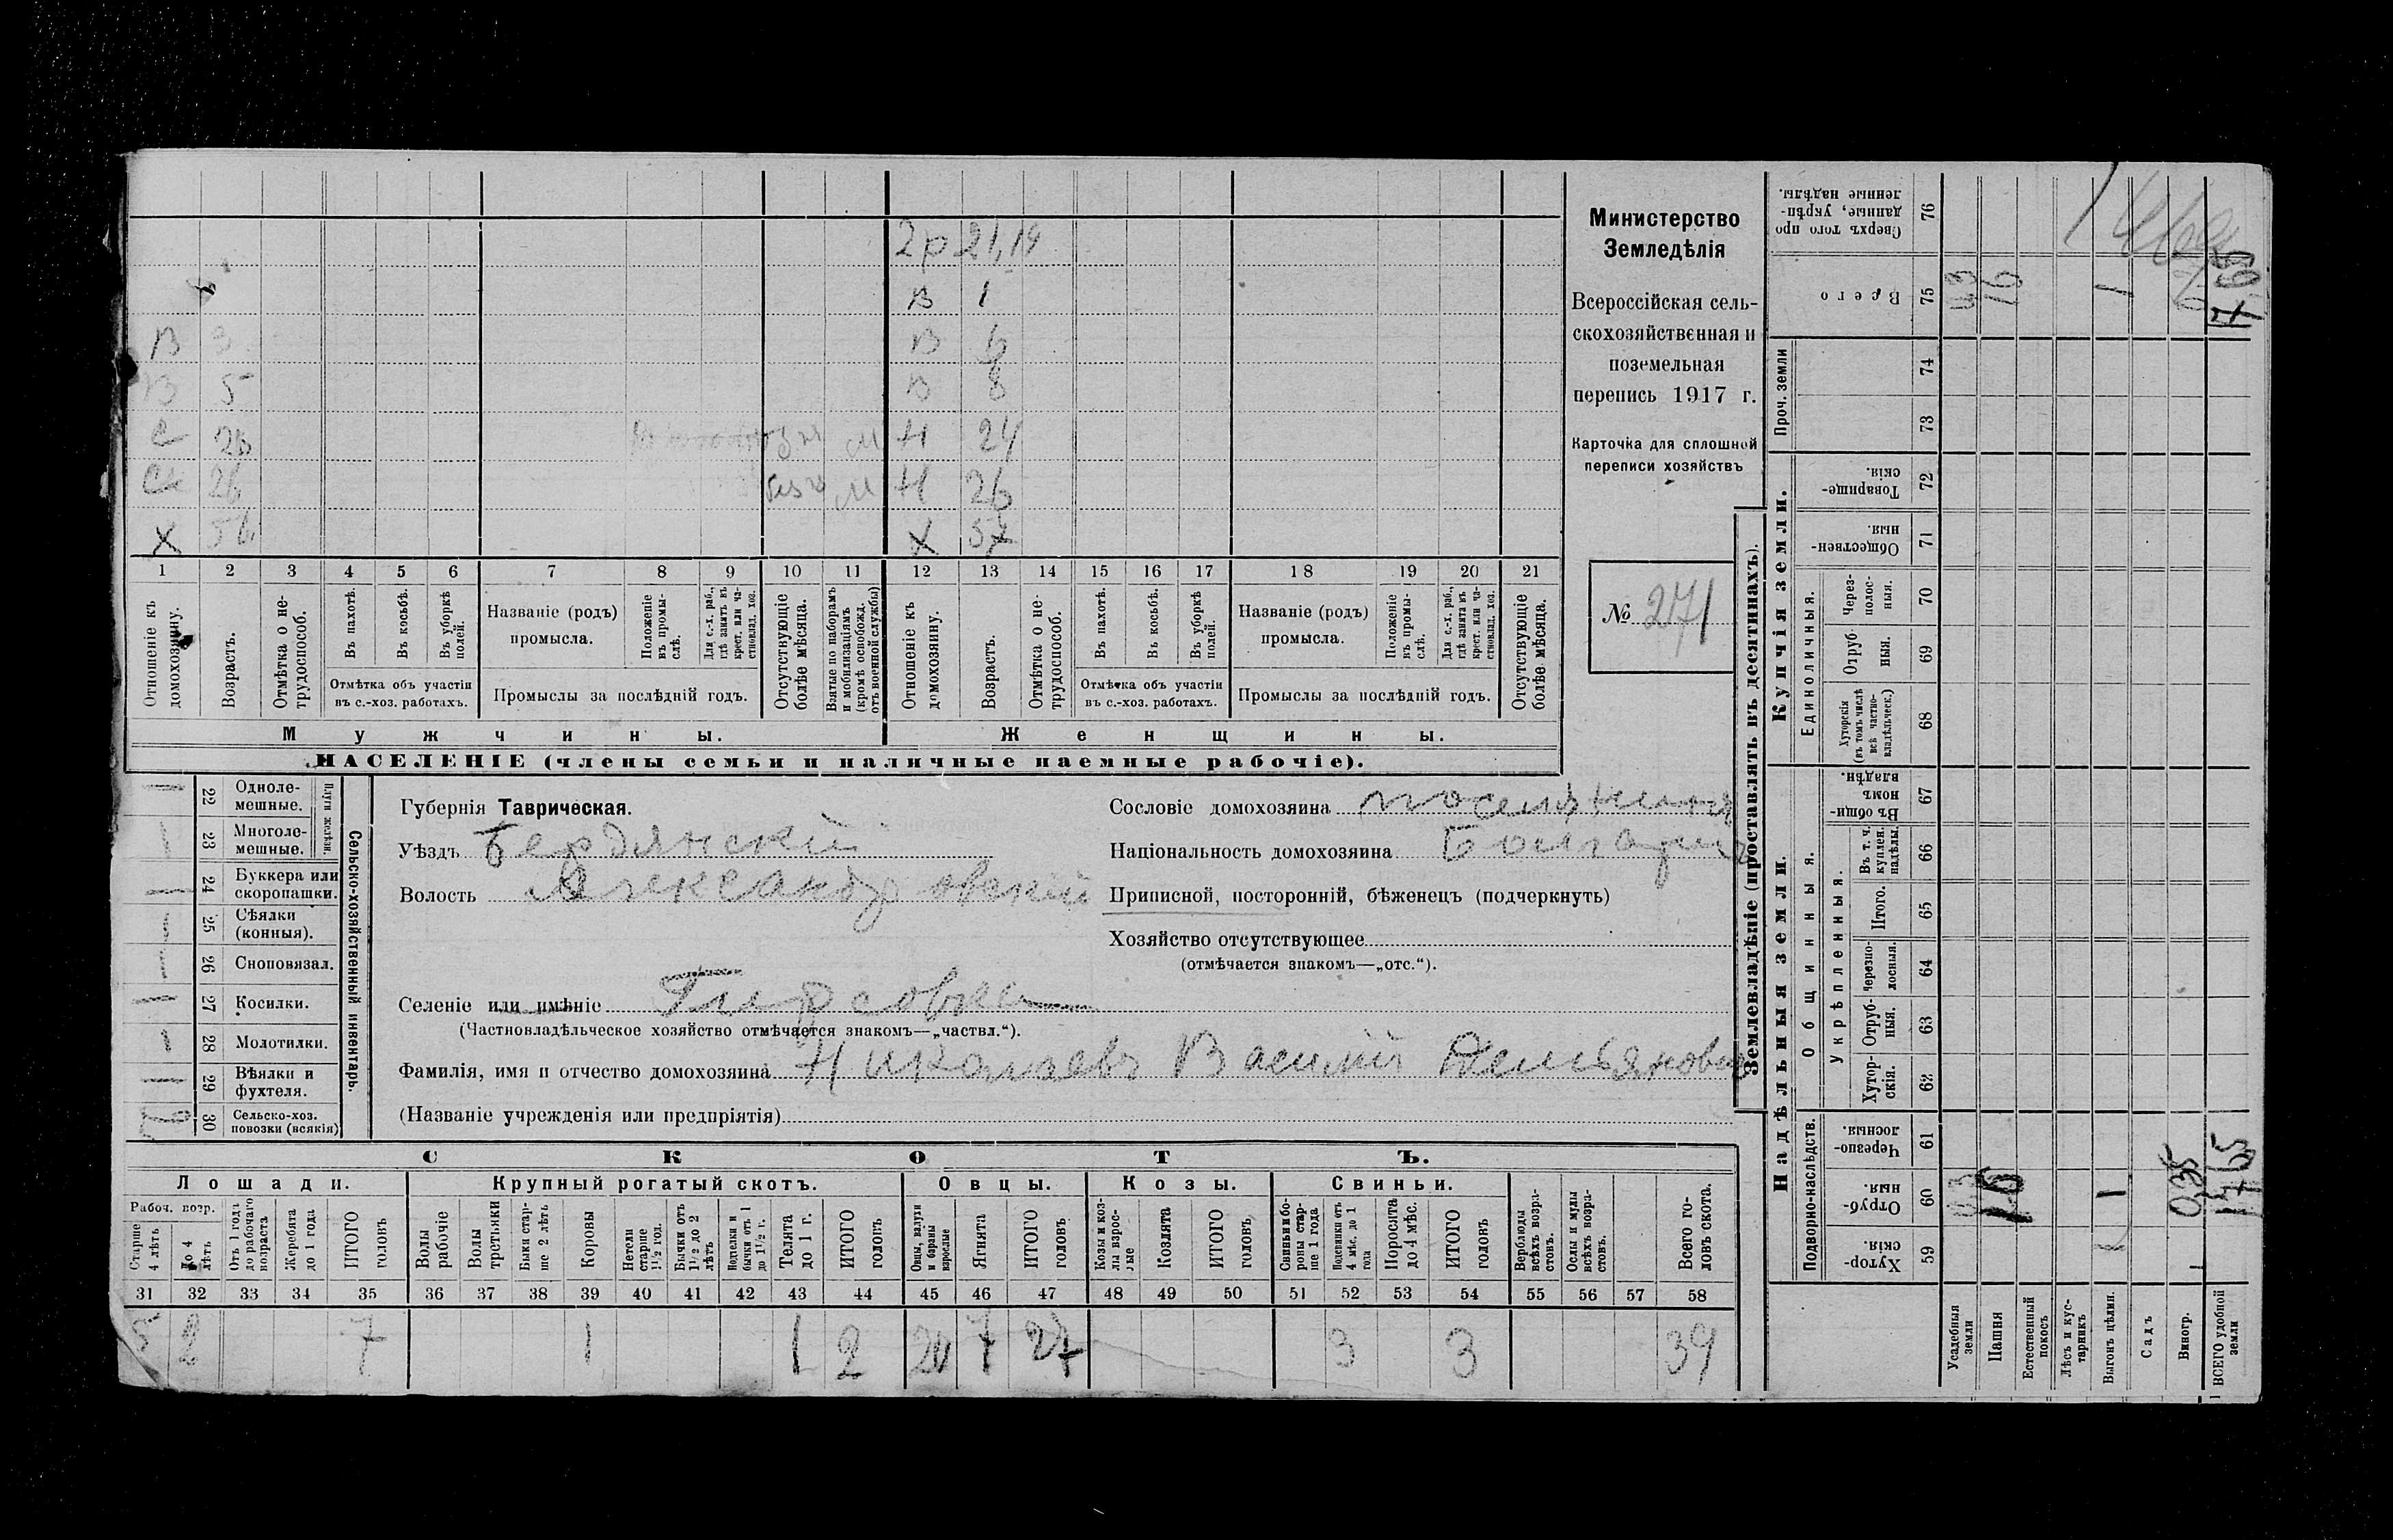 2р 21, 14
В 1
В 3 В 6
В 5 В 8
С 26 М Н 24
С 26 М Н 26
Х 56 Х 57
1 2 3 4 5 6 7 8 9 10 11 12 13 14 15 16 17 18 19 20 21
Отношеніе къ домохозяину.
Возрастъ.
Отмѣтка о не-трудоспособ.
Въ пахотѣ.
Въ косьбѣ.
Въ уборкѣ полей.
Отмѣтка объ участіи въ с.-хоз. работахъ.
Названіе (родъ) промысла.
Положеніе въ промы-слѣ.
Для с.-х. раб., гдѣ занятъ въ крест. или ча-стновлад. хоз.
Промыслы за послѣдній годъ.
Отсутствующіе болѣе мѣсяца.
Взятые по наборамъ и мобилизаціямъ (кромѣ освобожд. отъ военной службы)
Отношеніе къ домохозяину.
Возрастъ.
Отмѣтка о не-трудоспособ.
Въ пахотѣ.
Въ косьбѣ.
Въ уборкѣ полей.
Отмѣтка объ участіи въ с.-хоз. работахъ.
Названіе (родъ) промысла.
Положеніе въ промы-слѣ.
Для с.-х. раб., гдѣ занята въ крест. или ча-стновлад. хоз.
Промыслы за послѣдній годъ.
Отсутствующіе болѣе мѣсяца.
Мужчины. Женщины.
НАСЕЛЕНІЕ (члены семьи и наличные наемные рабочіе).
Министерство
Земледѣлія
Всероссійская сель-
скохозяйственная и
поземельная
перепись 1917 г.
Карточка для сплошной
переписи хозяйствъ
№ 271
Сельско-хозяйственный инвентарь.
Плуги желѣзн.
22 Одноле-мешные.
1 23 Многоле-мешные.
24 Буккера или скоропашки.
1 25 Сѣялки (конныя).
1 26 Сноповязал.
27 Косилки.
1 28 Молотилки.
29 Вѣялки и фухтеля.
30 Сельско-хоз. повозки (всякія)
Губернія Таврическая.
Уѣздъ Бердянскій
Волость Александровскій
Селеніе или имѣніе
(Частновладѣльческое хозяйство отмѣчается знакомъ—„частвл.“).
Фамилія, имя и отчество домохозяина Николаевъ Василій
(Названіе учрежденія или предпріятія)
Сословіе домохозяина поселянинъ
Національность домохозяина Болгаринъ
Приписной, посторонній, бѣженецъ (подчеркнуть)
Хозяйство отсутствующее
(отмѣчается знакомъ—„отс.“).
СКОТЪ.
Лошади. Крупный рогатый скотъ. Овцы. Козы. Свиньи.
Рабоч. возр.
Старше 4 лѣтъ
До 4 лѣтъ
Отъ 1 года до рабочаго возраста
Жеребята до 1 года
ИТОГО головъ
Волы рабочіе
Волы третьяки
Быки стар-ше 2 лѣтъ
Коровы
Нетели старше 1½ год.
Бычки отъ 1½ до 2 лѣтъ
Подтелки и бычки отъ 1 до 1½ г.
Телята до 1 г.
ИТОГО головъ
Овцы, валухи и бараны взрослые
Ягнята
ИТОГО головъ
Козы и коз-лы взрос-лые
Козлята
ИТОГО головъ
Свиньи и бо-ровы стар-ше 1 года
Подсвинки отъ 4 мѣс. до 1 года
Поросята до 4 мѣс.
ИТОГО головъ
Верблюды всѣхъ возра-стовъ.
Ослы и мулы всѣхъ возра-стовъ.
Всего го-ловъ скота.
31 32 33 34 35 36 37 38 39 40 41 42 43 44 45 46 47 48 49 50 51 52 53 54 55 56 57 58
5 2 7 1 1 2 20 7 27 3 3 39
Землевладѣніе (проставлять въ десятинахъ).
Надѣльныя земли. Купчія земли.
Подворно-наслѣдств.
Общинныя.
Укрѣпленныя.
Единоличныя.
Проч. земли
Хутор-скія. 59
Отруб-ныя. 60
Черезпо-лосныя. 61
Хутор-скія. 62
Отруб-ныя. 63
Черезпо-лосныя. 64
Итого. 65
Въ т. ч. куплен. надѣлы. 66
Въ общин-номъ владѣн. 67
Хуторскія (въ томъ числѣ всѣ частно-владѣльческ.) 68
Отруб-ныя. 69
Через-полос-ныя. 70
Обществен-ныя. 71
Товарище-скія. 72
73
74
Всего 75
Сверхъ того про-данные, укрѣп-ленные надѣлы. 76
Усадебныя земли 0,3 0,3
Пашня 16 16
Естественный покосъ
Лѣсъ и кус-тарникъ
Выгонъ цѣлин. 1 1
Садъ
Виногр. 0,35
ВСЕГО удобной земли 17,65